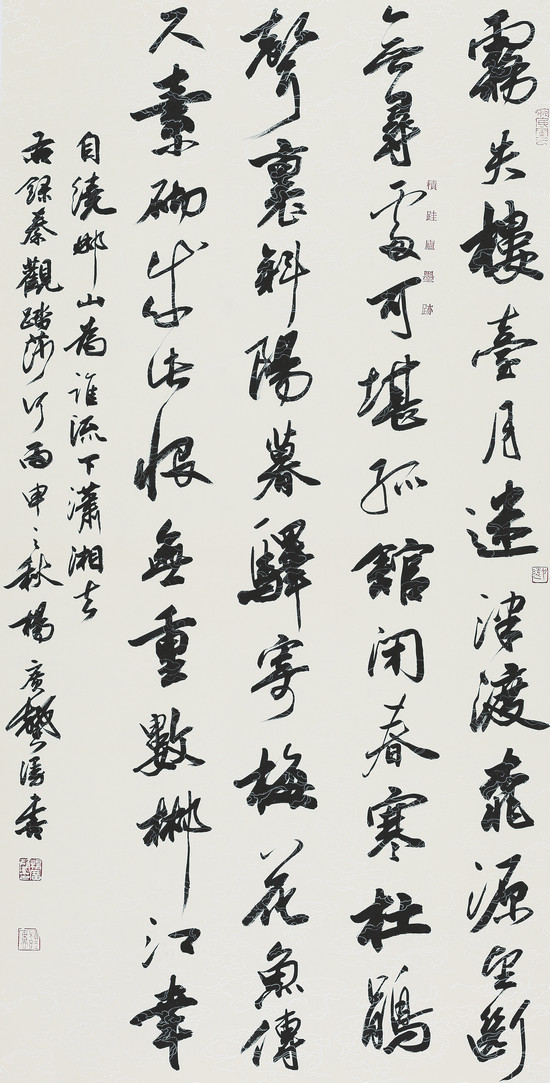 霧失樓臺月迷津渡桃源望斷
無尋處可堪孤館閉春寒杜鵑
積跬廬墨跡
聲裏斜陽暮驛寄梅花魚傳
尺素砌成此恨無重數郴江幸
自繞郴山為誰流下瀟湘去
右錄秦觀踏莎行丙申之秋楊廣馨漫書